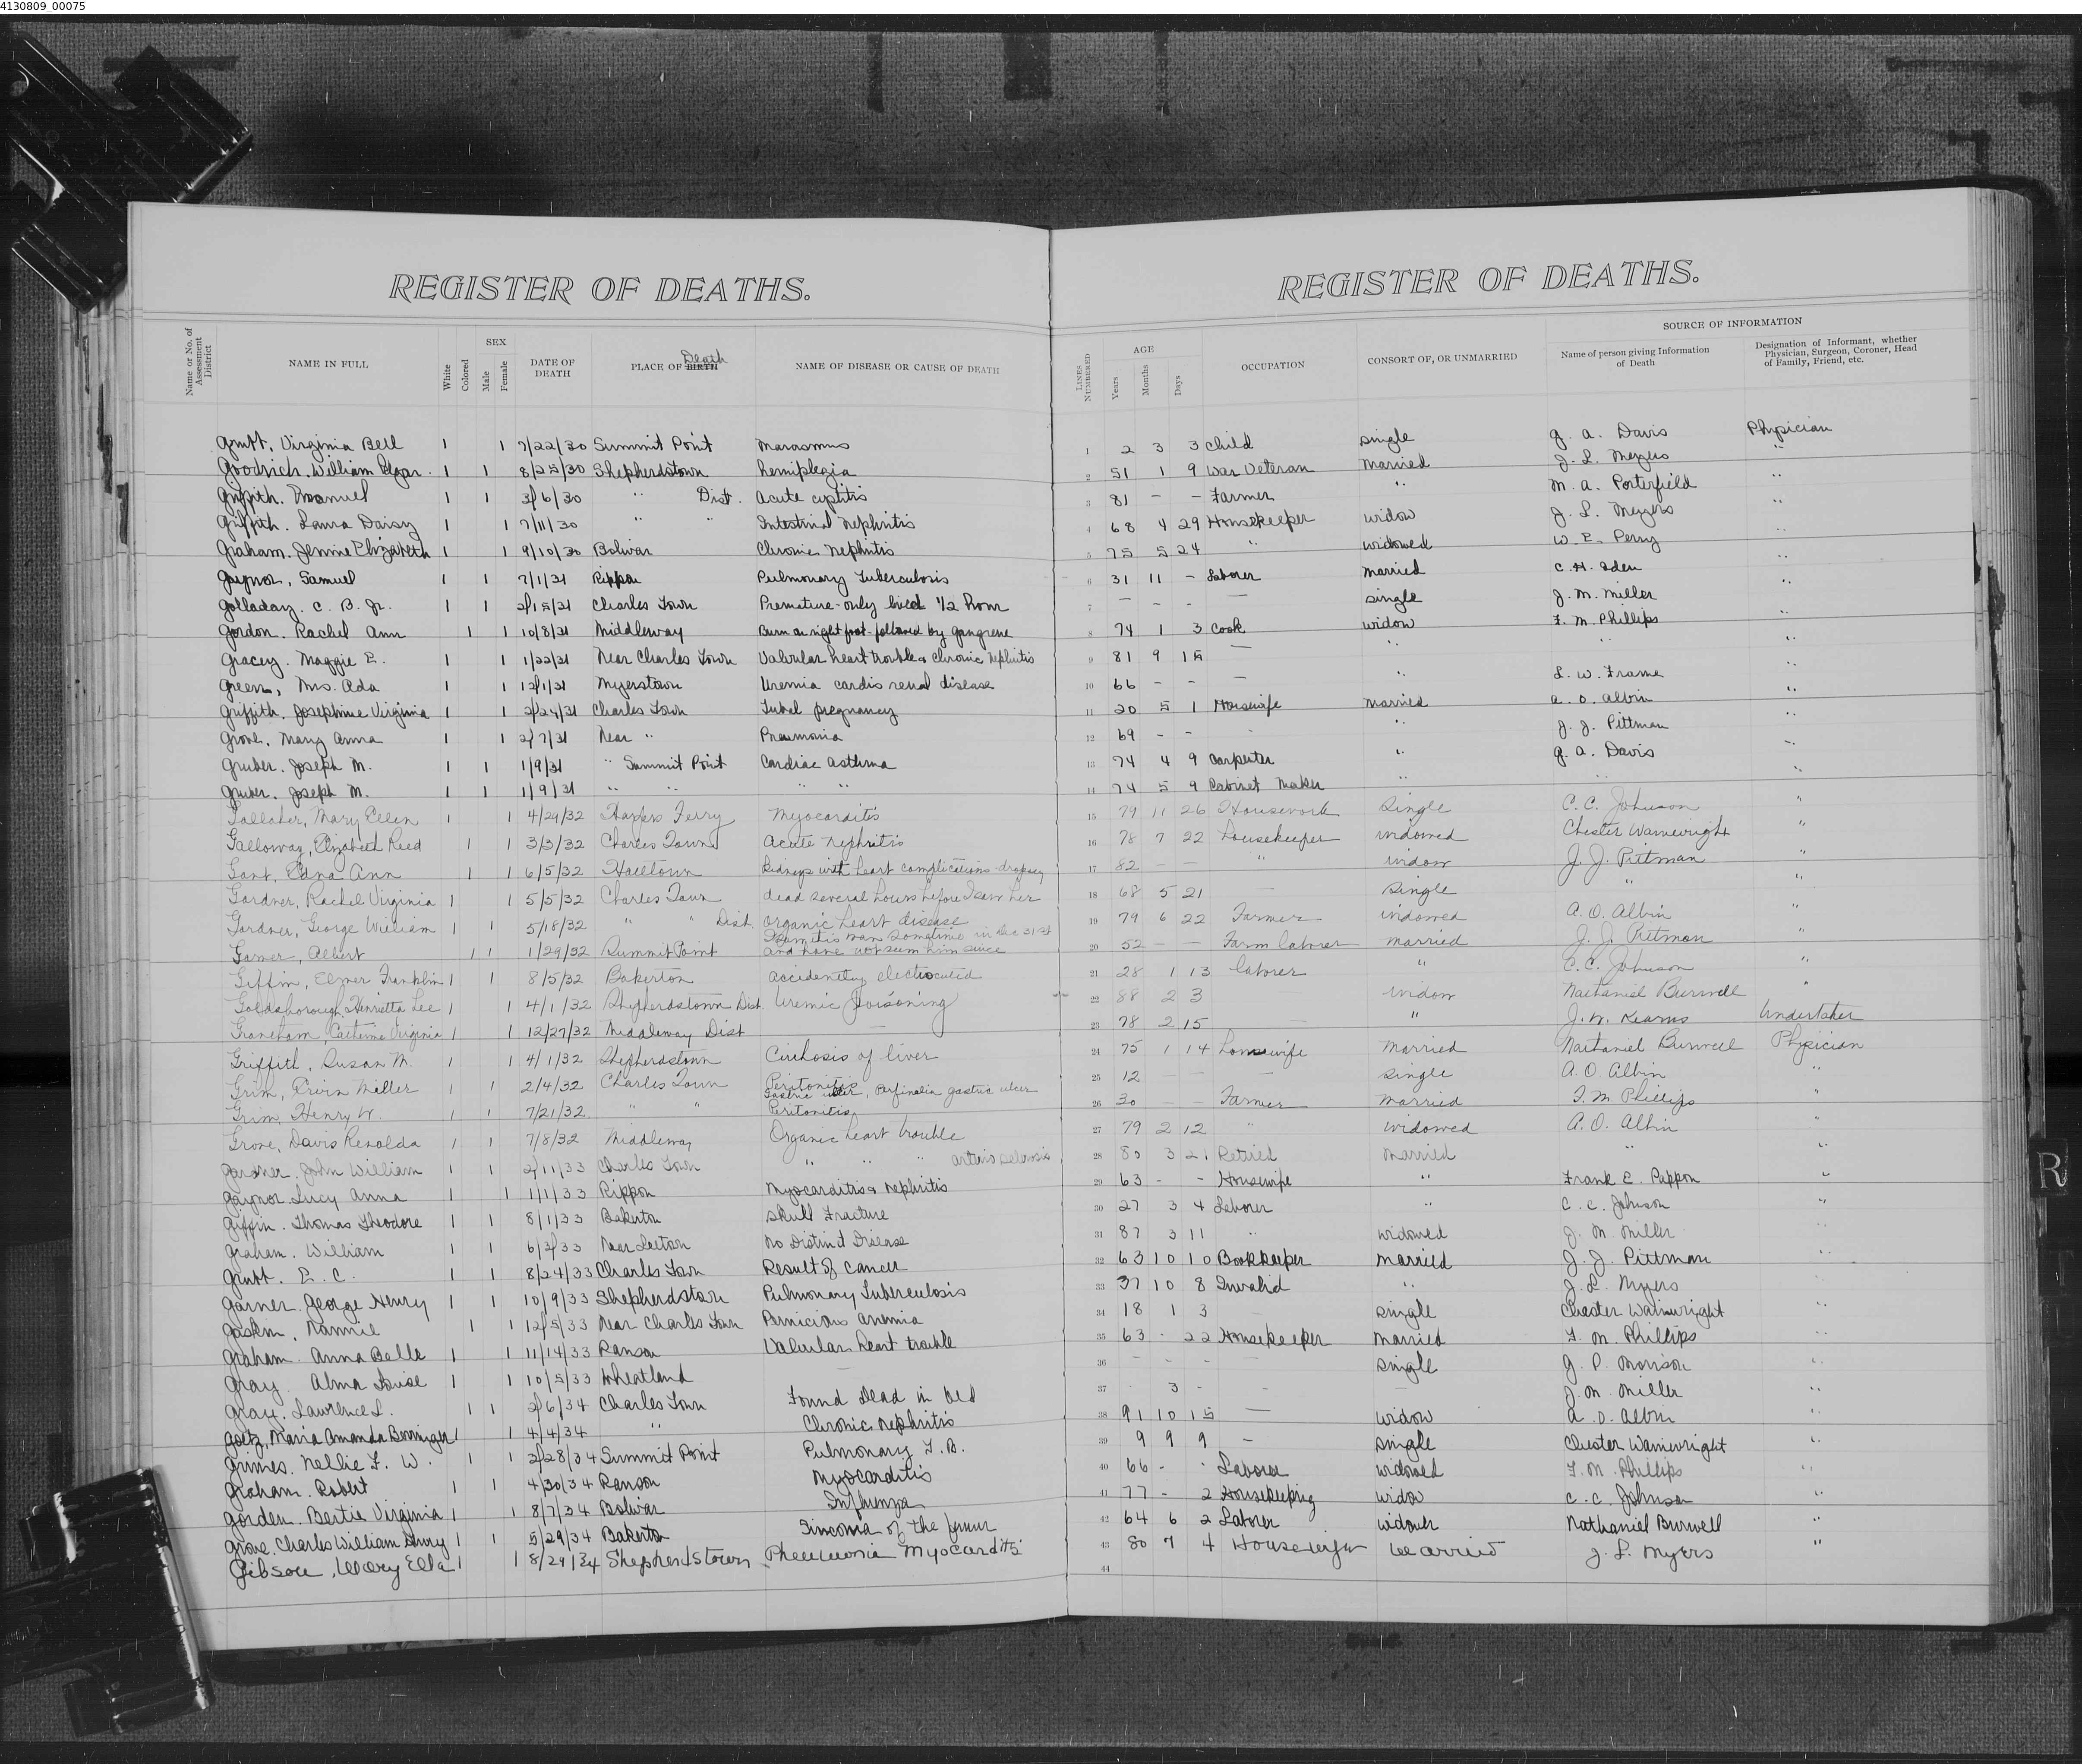 4130809_00075
REGISTER OF DEATHS.
Name or No. of Assessment District
NAME IN FULL
White
Colored
SEX
Male
Female
DATE OF DEATH
PLACE OF BIRTH Death
NAME OF DISEASE OR CAUSE OF DEATH
REGISTER OF DEATHS.
LINES NUMBERED
AGE
Years
Months
Days
OCCUPATION
CONSORT OF, OR UNMARRIED
SOURCE OF INFORMATION
Name of person giving Information of Death
Designation of Informant, whether Physician, Surgeon, Coroner, Head of Family, Friend, etc.
Virginia Bell 1 1 7/22/30 Summit Point Marasmus 1 2 3 3 child single G. A. Davis Physician
Goodrich, William Edgar. 1 1 8/25/30 Shepherdstown hemiplegia 2 51 1 9 War Veteran Married J. L. Meyers "
Griffith. Manuel 1 1 3/6/30 " Dist. Acute cystitis 3 81 - - Farmer " M. A. Porterfield "
Griffith. Laura Daisy 1 1 7/11/30 " " Intestinal nephritis 4 68 4 29 Housekeeper widow J. L. Meyers "
Graham. Jennie Elizabeth 1 1 9/10/30 Bolivar Chronic nephritis 5 75 5 24 " widowed W. E. Perry "
Gaynor, Samuel 1 1 7/1/31 Rippon Pulmonary Tuberculosis 6 31 11 - Laborer Married C. H. Oden "
Golladay. C. B. Jr. 1 1 2/15/31 Charles Town Premature-only lived 1/2 hour 7 - - - - single J. M. Miller "
Gordon. Rachel Ann 1 1 10/8/31 Middleway Burn on right foot-followed by gangrene 8 74 1 3 Cook widow F. M. Phillips "
Gracey. Maggie E. 1 1 1/22/31 Near Charles Town Valvular heart trouble & chronic nephritis 9 81 9 15 - " " "
Green, Mrs. Ada 1 1 12/1/31 Myerstown Uremia cardis renal disease 10 66 - - - " L. W. Frame "
Griffith, Josephine Virginia 1 1 2/24/31 Charles Town Tubal pregnancy 11 20 5 1 Housewife Married A. O. Albin "
Grove, Mary Anna 1 1 2/7/31 Near " Pneumonia 12 69 - - - " J. J. Pittman "
Gruber. Joseph M. 1 1 1/9/31 " Summit Point Cardiac asthma 13 74 4 9 Carpenter " G. A. Davis "
Gruber. Joseph M. 1 1 1/9/31 " " " " 14 74 5 9 Cabinet Maker " " "
Gallaher, Mary Ellen 1 1 4/29/32 Harpers Ferry Myocarditis 15 79 11 26 Housework Single C. C. Johnson "
Galloway, Elizabeth Reed 1 1 3/3/32 Charles Town Acute nephritis 16 78 7 22 housekeeper widowed Chester Wainwright "
Gant, Edna Ann 1 1 6/5/32 Halltown Kidneys with heart complications-dropsey 17 82 - - " widow J. J. Pittman "
Gardner, Rachel Virginia 1 1 5/5/32 Charles Town dead several hours before I saw her 18 68 5 21 - single " "
Gardner, George William 1 1 5/18/32 " " Dist. organic heart disease 19 79 6 22 Farmer widowed A. O. Albin "
Garner, Albert 1 1 1/29/32 Summit Point this man sometime in Dec 31st and have not seen him since 20 52 - - Farm laborer married J. J. Pittman "
Giffin, Elmer Franklin 1 1 8/5/32 Bakerton accidently electrocuted 21 28 1 13 laborer " C. C. Johnson "
Goldsborough, Henrietta Lee 1 1 4/1/32 Shepherdstown Dist. Uremic Poisoning 22 88 2 3 - widow Nathaniel Burwell "
Catherine Virginia 1 1 12/27/32 Middleway Dist - 23 78 2 15 - " J. W. Kearns Undertaker
Griffith, Susan M. 1 1 4/1/32 Shepherdstown Cirrhosis of liver 24 75 1 14 housewife Married Nathaniel Burwell Physician
Grim, Ervin Miller 1 1 2/4/32 Charles Town Peritonitis 25 12 - - - single A. O. Albin "
Grim, Henry W. 1 1 7/21/32 " " Gastric ulcer, gastric ulcer Peritonitis 26 30 - - Farmer Married F. M. Phillips "
Grove, Davis Renolda 1 1 7/8/32 Middleway Organic heart trouble 27 79 2 12 " widowed A. O. Albin "
Gardner. John William 1 1 2/11/33 Charles Town " " " arterio sclerosis 28 80 3 21 Retired Married " "
Gaynor Lucy Anna 1 1 1/1/33 Rippon Myocarditis & nephritis 29 63 - - Housewife " Frank E. Pappon "
Giffin. Thomas Theodore 1 1 8/1/33 Bakerton Skull Fracture 30 27 3 4 Laborer " C. C. Johnson "
Graham. William 1 1 6/3/33 Near No Distinct Disease 31 87 3 11 " widowed J. M. Miller "
E. C. 1 1 8/24/33 Charles Town Result of cancer 32 63 10 10 Bookkeeper Married J. J. Pittman "
Garner. George Henry 1 1 10/9/33 Shepherdstown Pulmonary Tuberculosis 33 37 10 8 Invalid " J. L. Myers "
Gaskin, Nannie 1 1 12/5/33 Near Charles Town Pernicious anemia 34 18 1 3 - single Chester Wainwright "
Graham. Anna Belle 1 1 11/14/33 Ranson Valvular heart trouble 35 63 - 22 Housekeeper Married F. M. Phillips "
Gray. Alma Louise 1 1 10/5/33 Wheatland - 36 - - - - single G. P. Morison "
Gray. Lawrence L. 1 1 2/6/34 Charles Town Found dead in bed 37 - 3 - - - J. M. Miller "
Goetz, Maria Amanda 1 1 4/4/34 " Chronic nephritis 38 91 10 15 - widow A. O. Albin "
Grimes. Nellie F. W. 1 1 2/28/34 Summit Point Pulmonary T. B. 39 9 9 9 - single Chester Wainwright "
Graham. Robert 1 1 4/30/34 Ranson Myocarditis 40 66 - - Laborer widowed F. M. Phillips "
Gorden. Bertie Virginia 1 1 8/7/34 Bolivar Influenza 41 77 - 2 Housekeeping widow C. C. Johnson "
Grove. Charles William Henry 1 1 5/29/34 Bakerton of the femur 42 64 6 2 Laborer widower Nathaniel Burwell "
Gibson, Mary Ella 1 1 8/29/34 Shepherdstown Pneumonia Myocarditis 43 80 7 4 Housewife Married J. L. Myers "
44
R